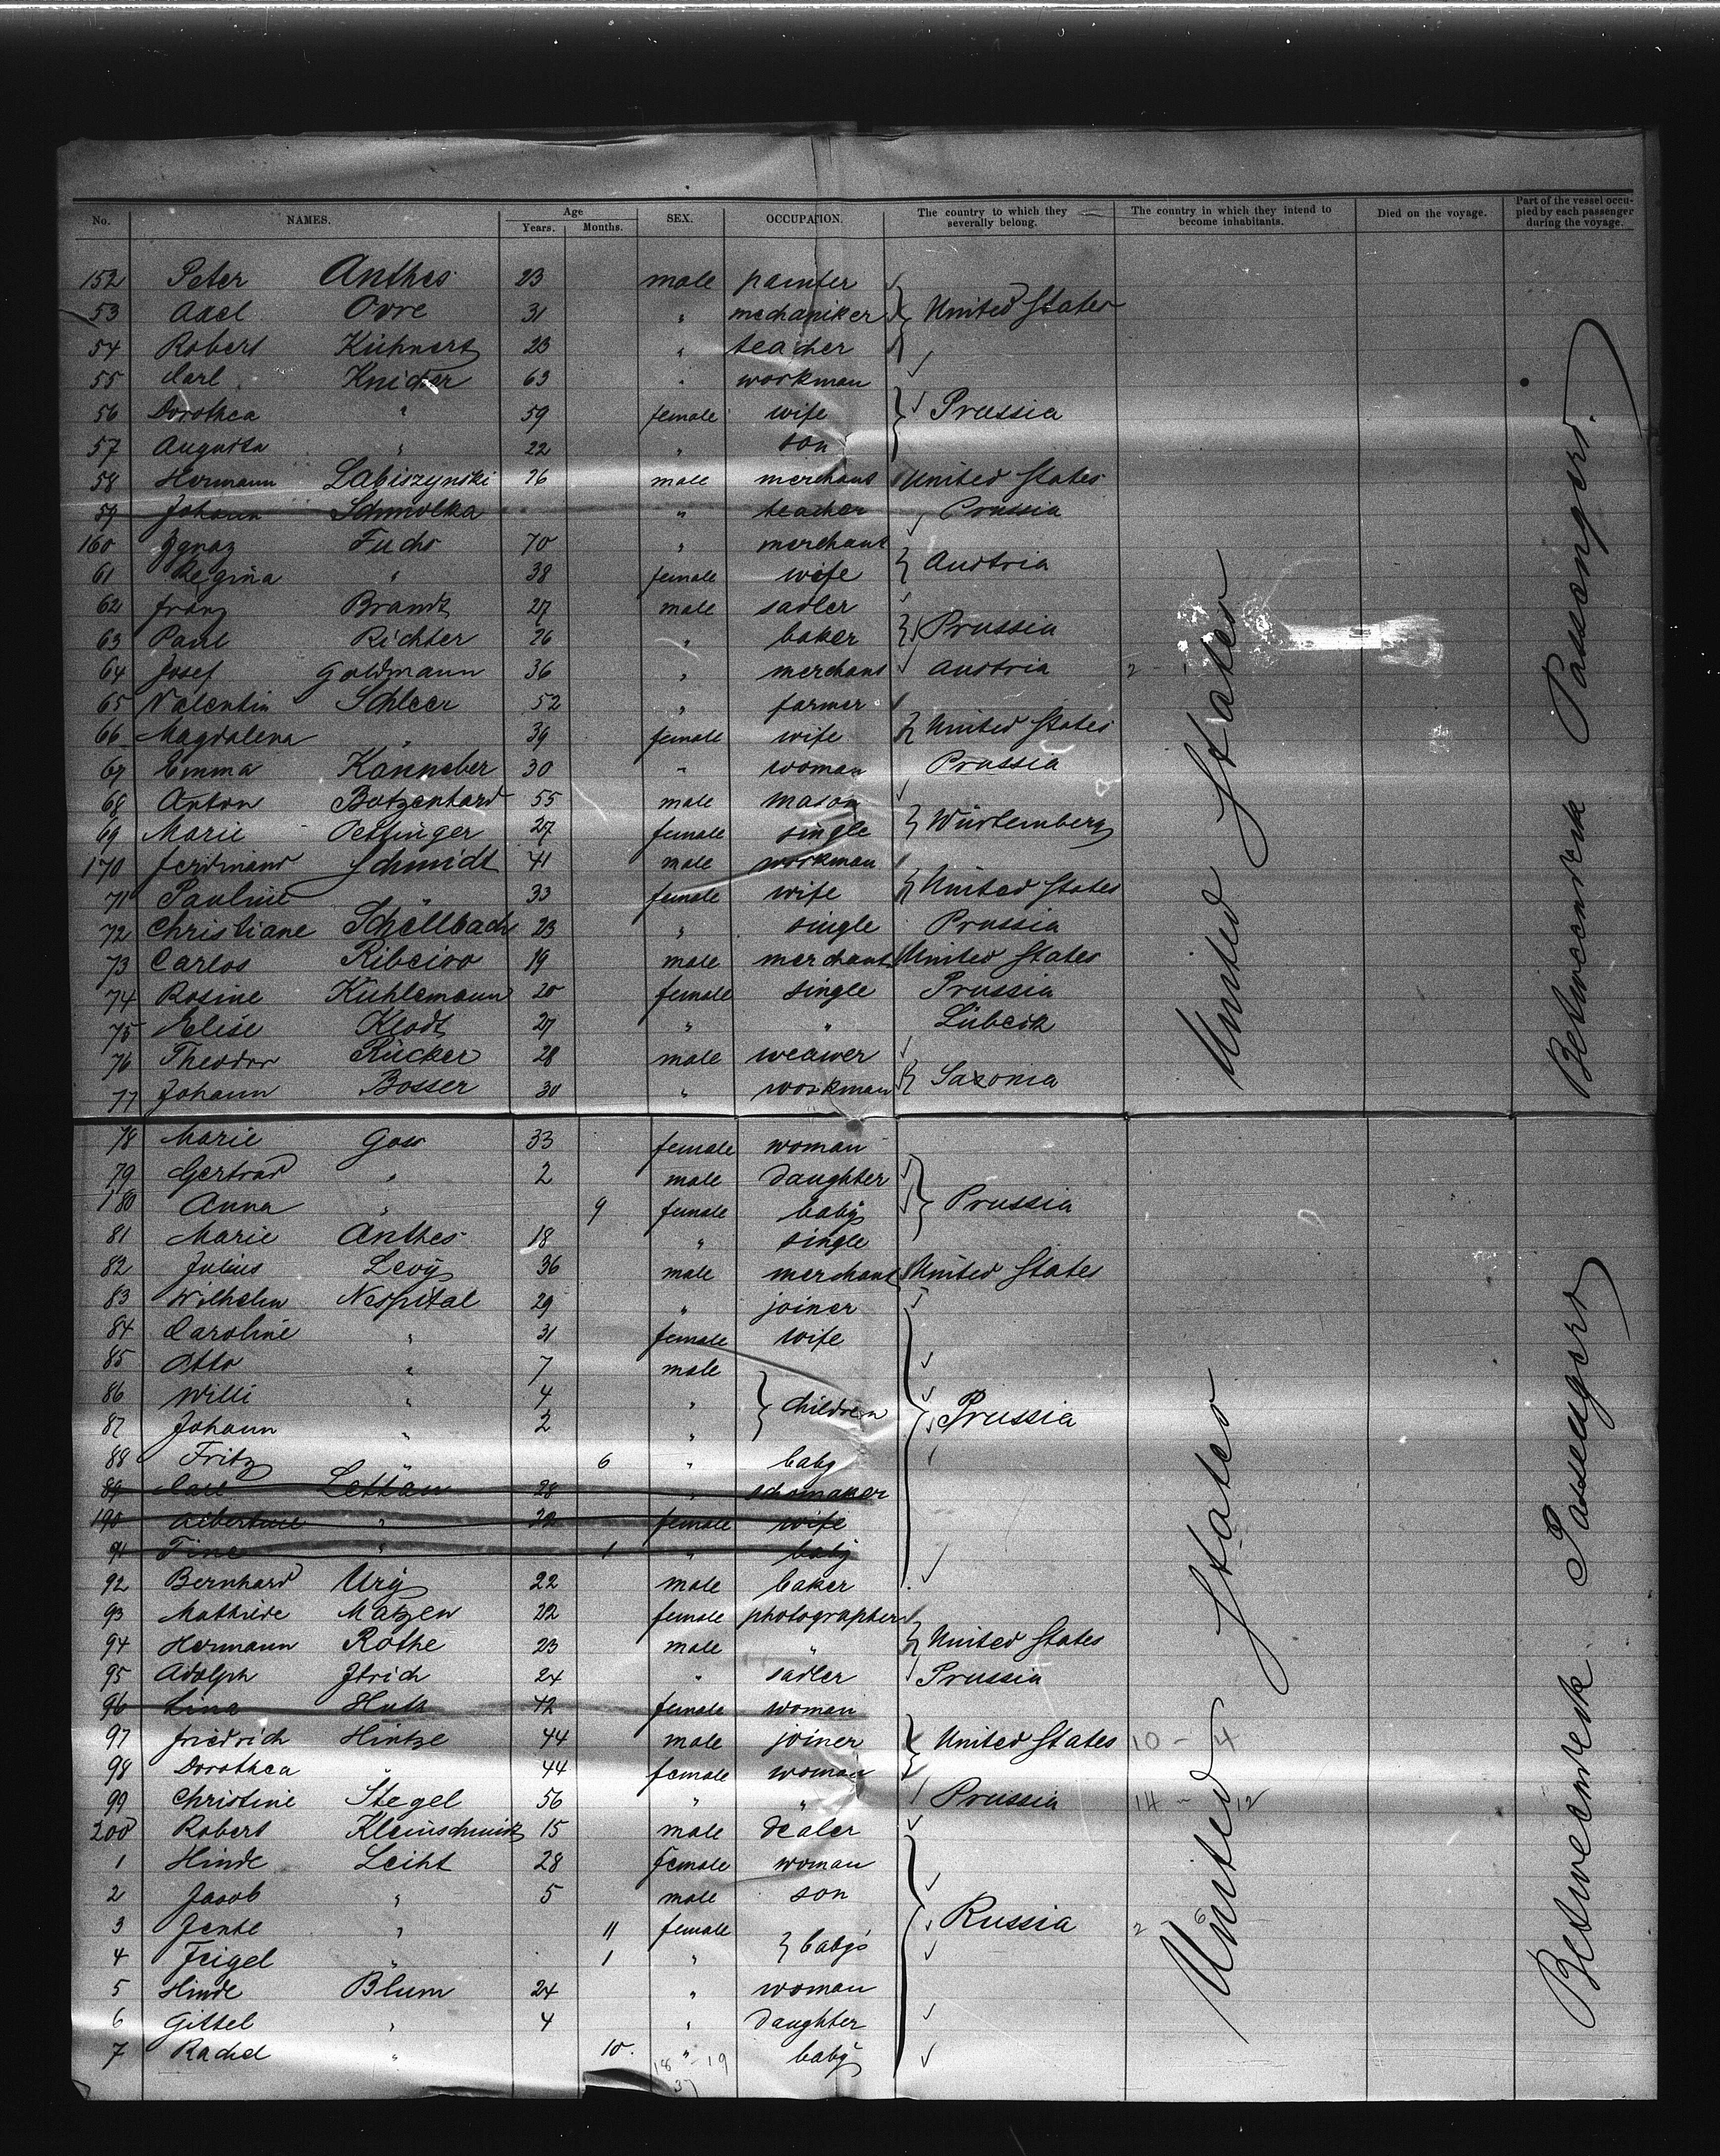 No. NAMES. Age Years. Months. SEX. OCCUPATION. The country to which they severally belong. The country in which they intend to become inhabitants. Died on the voyage. Part of the vessel occupied by each passenger during the voyage.
152 Peter Anthes 23 male painter
53 Axel Ovre 31 " mechaniker United States
54 Robert Kühnert 23 " teacher
55 Carl Knider 63 " workman
56 Dorothea " 59 female wife Prussia
57 Augusta " 22 " son
58 Hermann Labiszynski 26 male merchant United States
59 Johann Schmolka " teacher Prussia
160 Ignaz Fuchs 70 " merchant
61 Regina " 38 female wife Austria
62 Franz Brandt 27 male sadler
63 Paul Richter 26 " baker Prussia
64 Josef Goldmann 36 " merchant Austria 2 -
65 Valentin Schleer 52 " farmer
66 Magdalena " 39 female wife United States
67 Emma Kanneber 30 " woman Prussia
68 Anton Botzenhard 55 male mason
69 Marie Oettinger 27 female single Würtemberg
170 Ferdinand Schmidt 41 male workman
71 Pauline " 33 female wife United States
72 Christiane Schellbach 23 " single Prussia
73 Carlos Ribeiro 19 male merchant United States
74 Rosine Kuhlemann 20 female single Prussia
75 Elise Klodt 27 " " Lübeck
76 Theodor Rücker 28 male weawer
77 Johann Bosser 30 " workman Saxonia
United States
Betweendeck Passengers.
78 Marie Goss 33 female woman
79 Gertrud " 2 male daughter
180 Anna " 9 female baby Prussia
81 Marie Anthes 18 " single
82 Julius Levy 36 male merchant United States
83 Wilhelm Nespital 29 " joiner
84 Caroline " 31 female wife
85 Otto " 7 male
86 Willi " 4 " children Prussia
87 Johann " 2 "
88 Fritz " 6 " baby
89 Carl Lettau 28 " schomaker
190 Albertine " 22 female wife
91 Tine " 1 " baby
92 Bernhard Ury 22 male baker
93 Mathilde Matzen 22 female photographer
94 Hermann Rothe 23 male " United States
95 Adolph Jlrich 24 " sadler Prussia
96 Lina Huth 42 female woman
97 Friedrich Hintze 44 male joiner United States 10 - 4
98 Dorothea " 44 female woman
99 Christine Stegel 56 " " Prussia 14 - 12
200 Robert Kleinschmidt 15 male dealer
1 Hinde Leiht 28 female woman
2 Jacob " 5 male son
3 Jente " 11 female babys Russia 2 6
4 Feigel " 1 "
5 Hinde Blum 24 " woman
6 Gittel " 4 " daughter
7 Rachel " 10 " baby
18 - 19
37
United States
Betweendeck Passengers